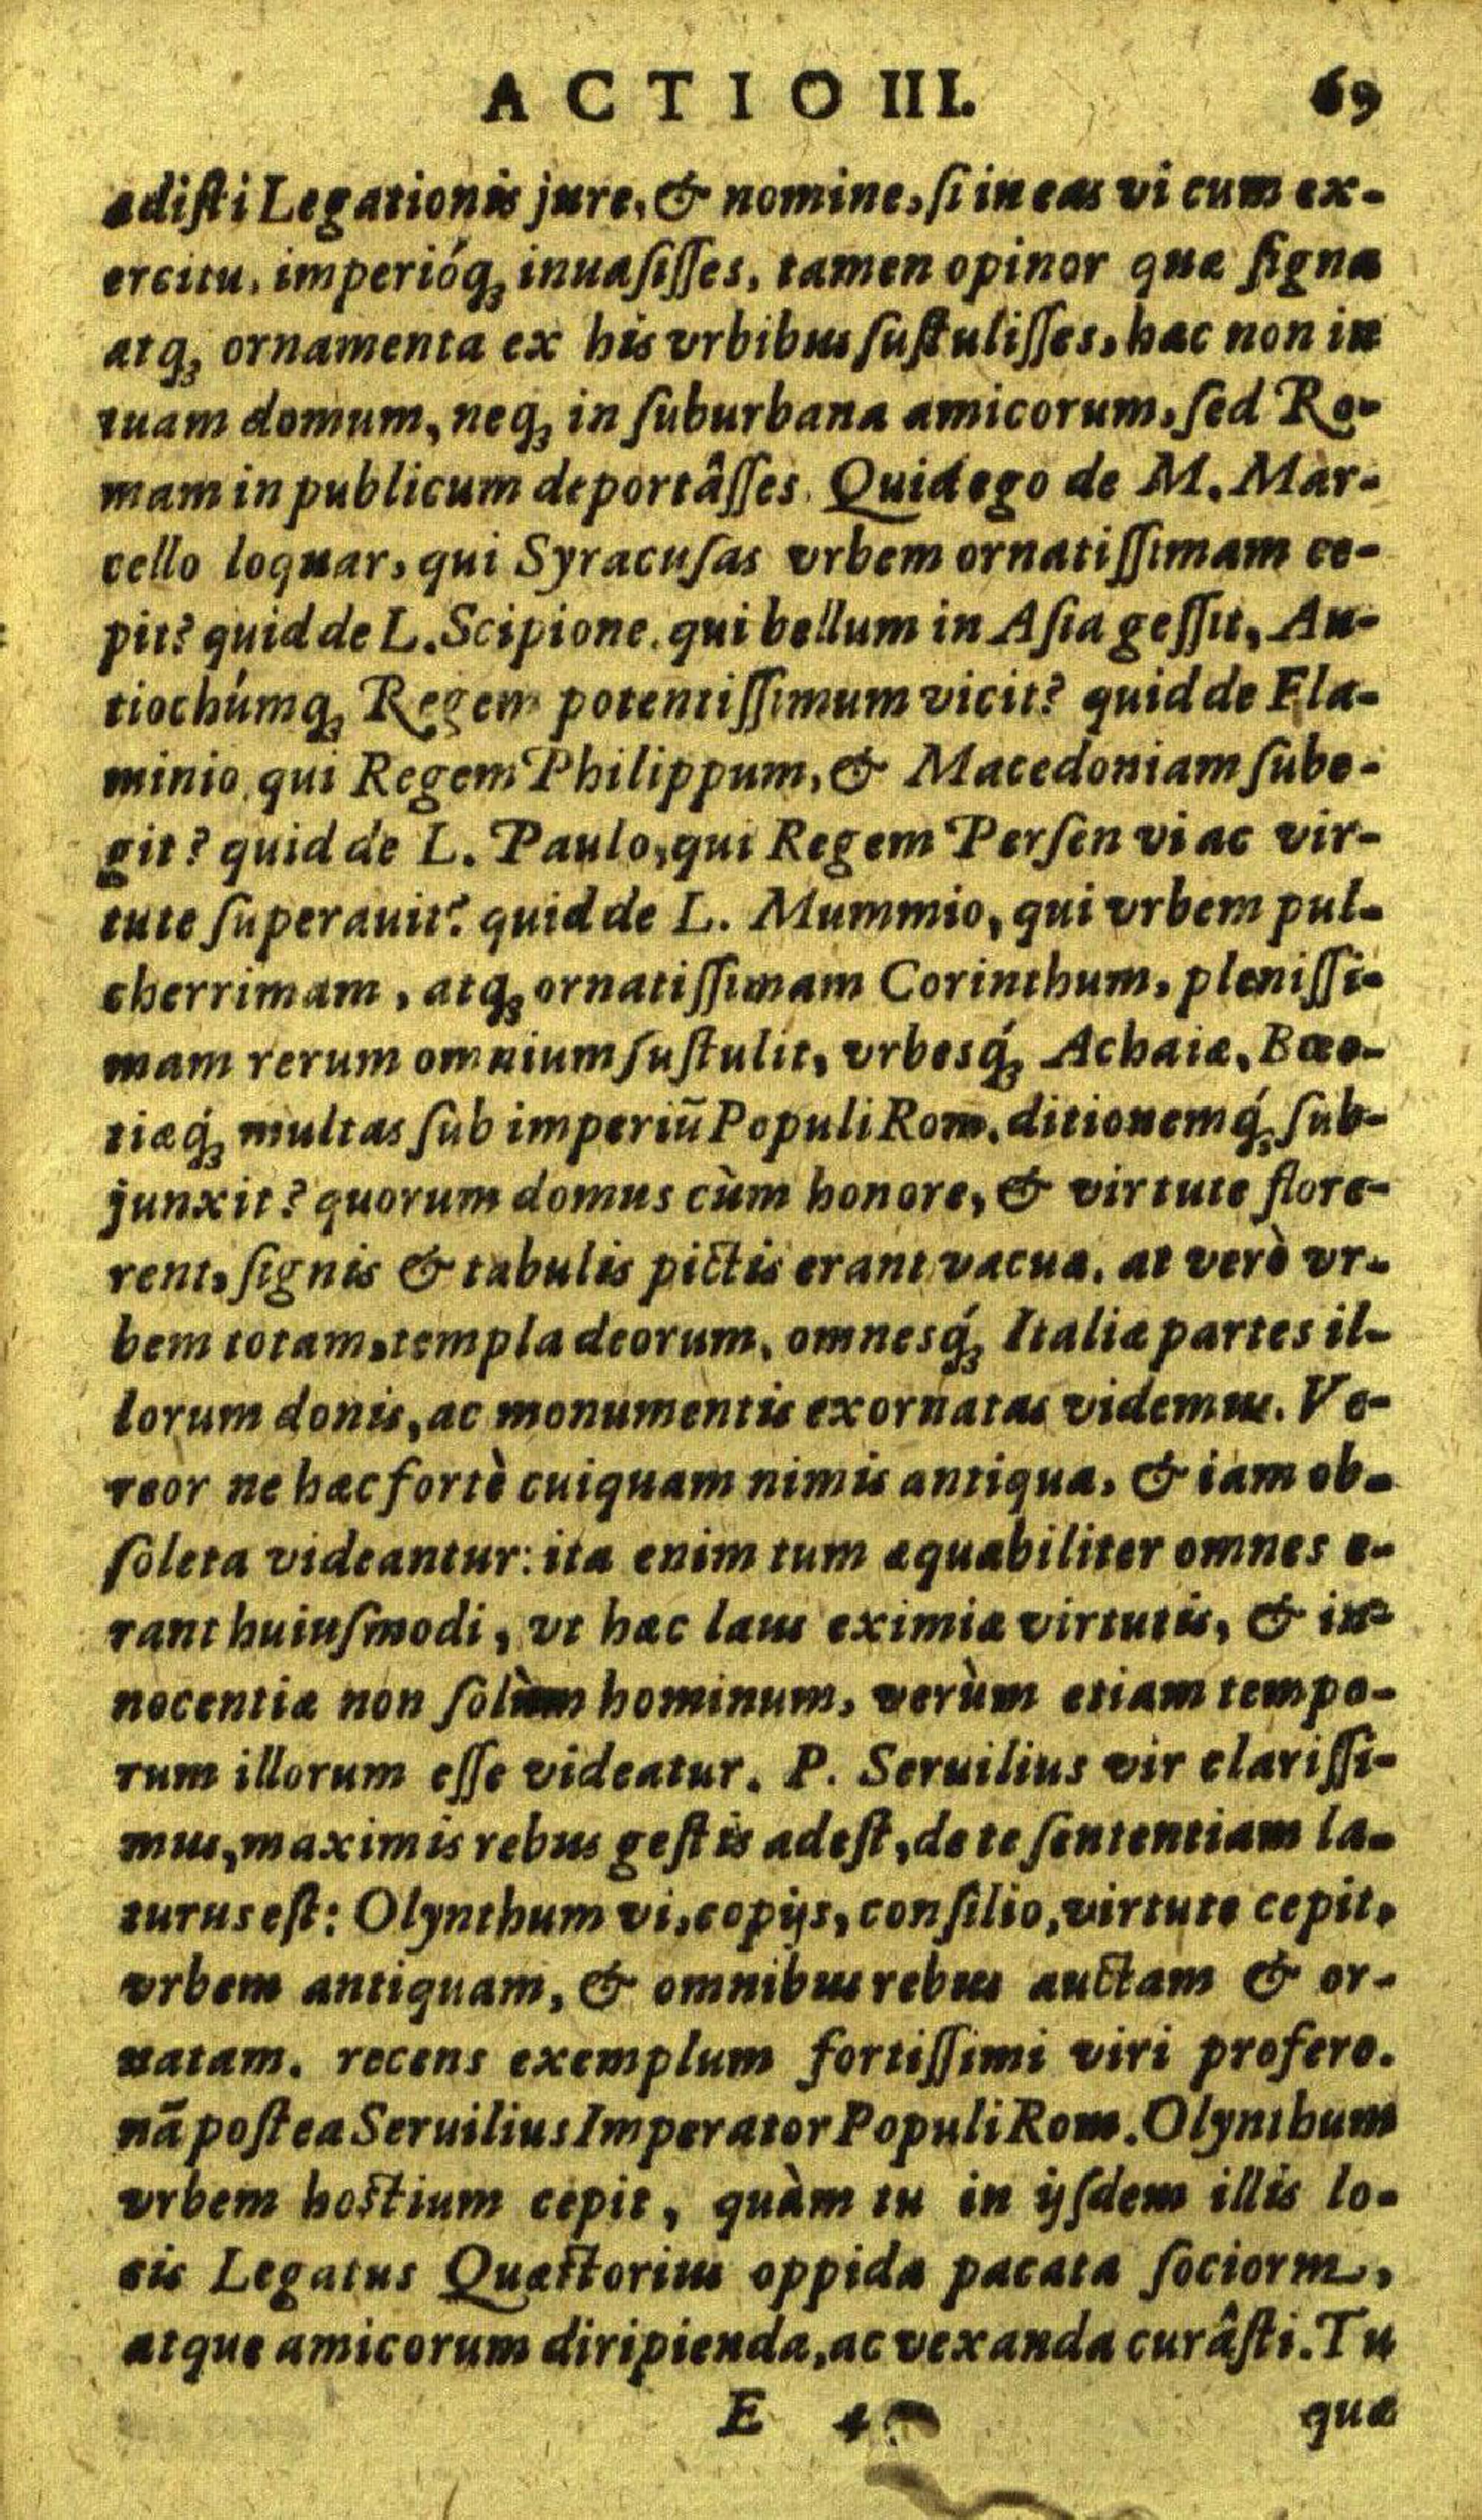 ACTIO III. 69
adiſti Legationis jure, & nomine, ſi in eas vi cum ex-
ercitu, imperióq; inuaſiſſes, tamen opinor quæ ſigna
atq; ornamenta ex his vrbibus ſuſtuliſſes, hæc non in
tuam domum, neq; in ſuburbana amicorum, ſed Ro-
mam in publicum deportâſſes. Quid ego de M. Mar-
cello loquar, qui Syracuſas vrbem ornatiſſimam ce-
pit? quid de L. Scipione, qui bellum in Aſia geſſit, An-
tiochúmq; Regem potentiſſimum vicit? quid de Fla-
minio qui Regem Philippum, & Macedoniam ſube-
git? quid de L. Paulo, qui Regem Perſen vi ac vir-
tute ſuperauit? quid de L. Mummio, qui vrbem pul-
cherrimam, atq; ornatiſſimam Corinthum, pleniſſi-
mam rerum omnium ſuſtulit, vrbesq́; Achaiæ, Bœo-
tiæq́; multas ſub imperiū Populi Rom. ditionemq́; ſub-
junxit? quorum domus cùm honore, & virtute flore-
rent, ſignis & tabulis pictis erant vacuæ. at verò vr-
bem totam, templa deorum, omnesq́; Italiæ partes il-
lorum donis, ac monumentis exornatas videmus. Ve-
reor ne hæc fortè cuiquam nimis antiqua, & iam ob-
ſoleta videantur: ita enim tum æquabiliter omnes e-
rant huiuſmodi, vt hæc laus eximiæ virtutis, & in-
nocentiæ non ſolùm hominum, verùm etiam tempo-
rum illorum eſſe videatur. P. Seruilius vir clariſſi-
mus, maximis rebus geſtis adeſt, de te ſententiam la-
turus eſt: Olynthum vi, copijs, conſilio, virtute cepit,
vrbem antiquam, & omnibus rebus auctam & or-
natam. recens exemplum fortiſſimi viri profero.
nā poſtea Seruilius Imperator Populi Rom. Olynthum
vrbem hoſtium cepit, quàm tu in ijſdem illis lo-
cis Legatus Quæſtorius oppida pacata ſociorm,
atque amicorum diripienda, ac vexanda curâſti. Tu
E 4 quæ